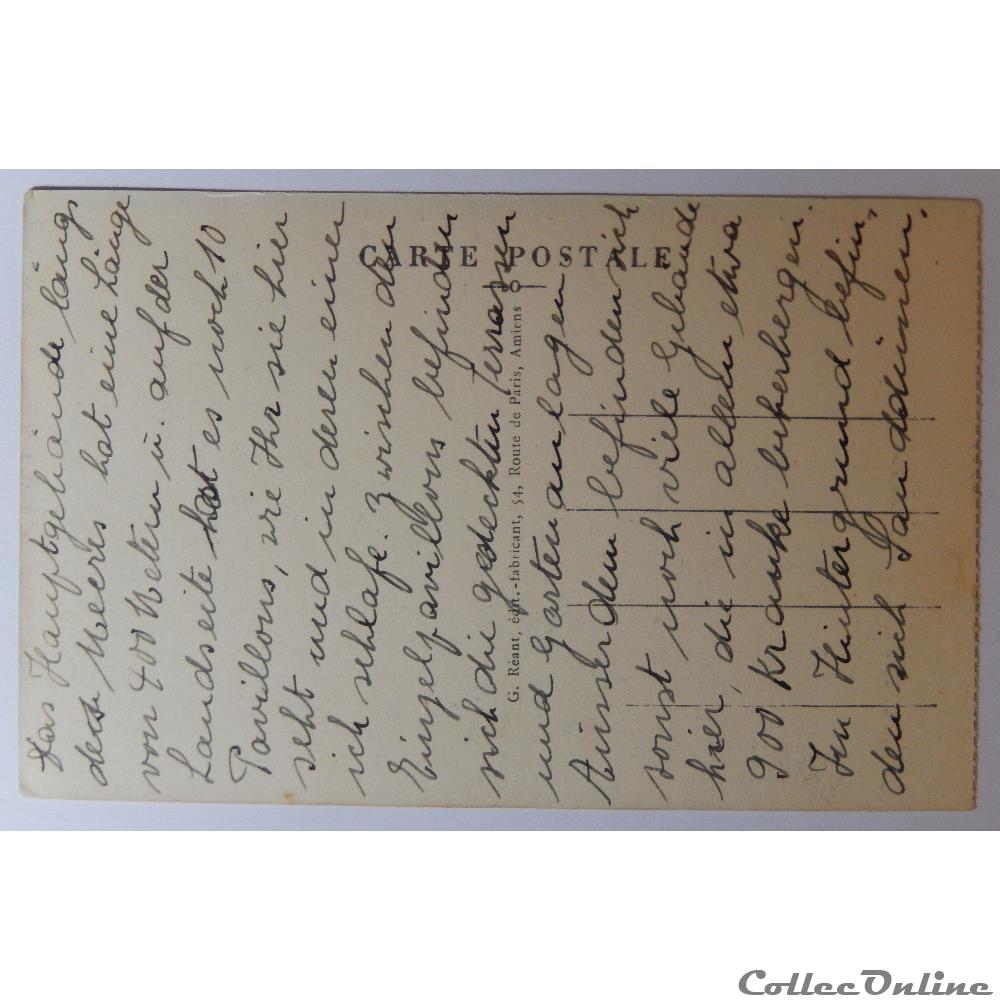 CARTE POSTALE
G. Réant, édit.-fabricant, 54, Route de Paris, Amiens
Das Hauptgebäude längs
des Meeres hat eine Länge
von 400 Metern u. auf der
Landseite hat es noch 10
Pavillons, wie Ihr sie hier
seht und in deren einer
ich schlafe. Zwischen den
Einzelpavillons befinden
sich die gedeckten Terrassen
und Gartenanlagen
Ausserdem befinden sich
sonst noch viele Gebäude
hier, die in allem etwa
900 Kranke beherbergen.
Im Hintergrund befin-
den sich Sanddünen.
CollecOnline